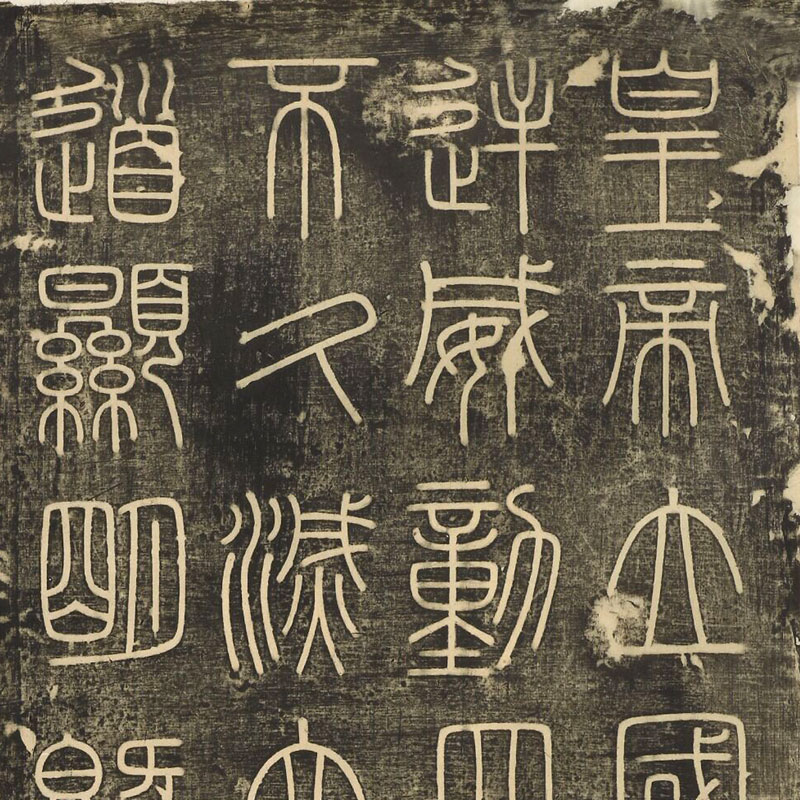 皇帝立國
逆威動四
不久滅六
道顯明既